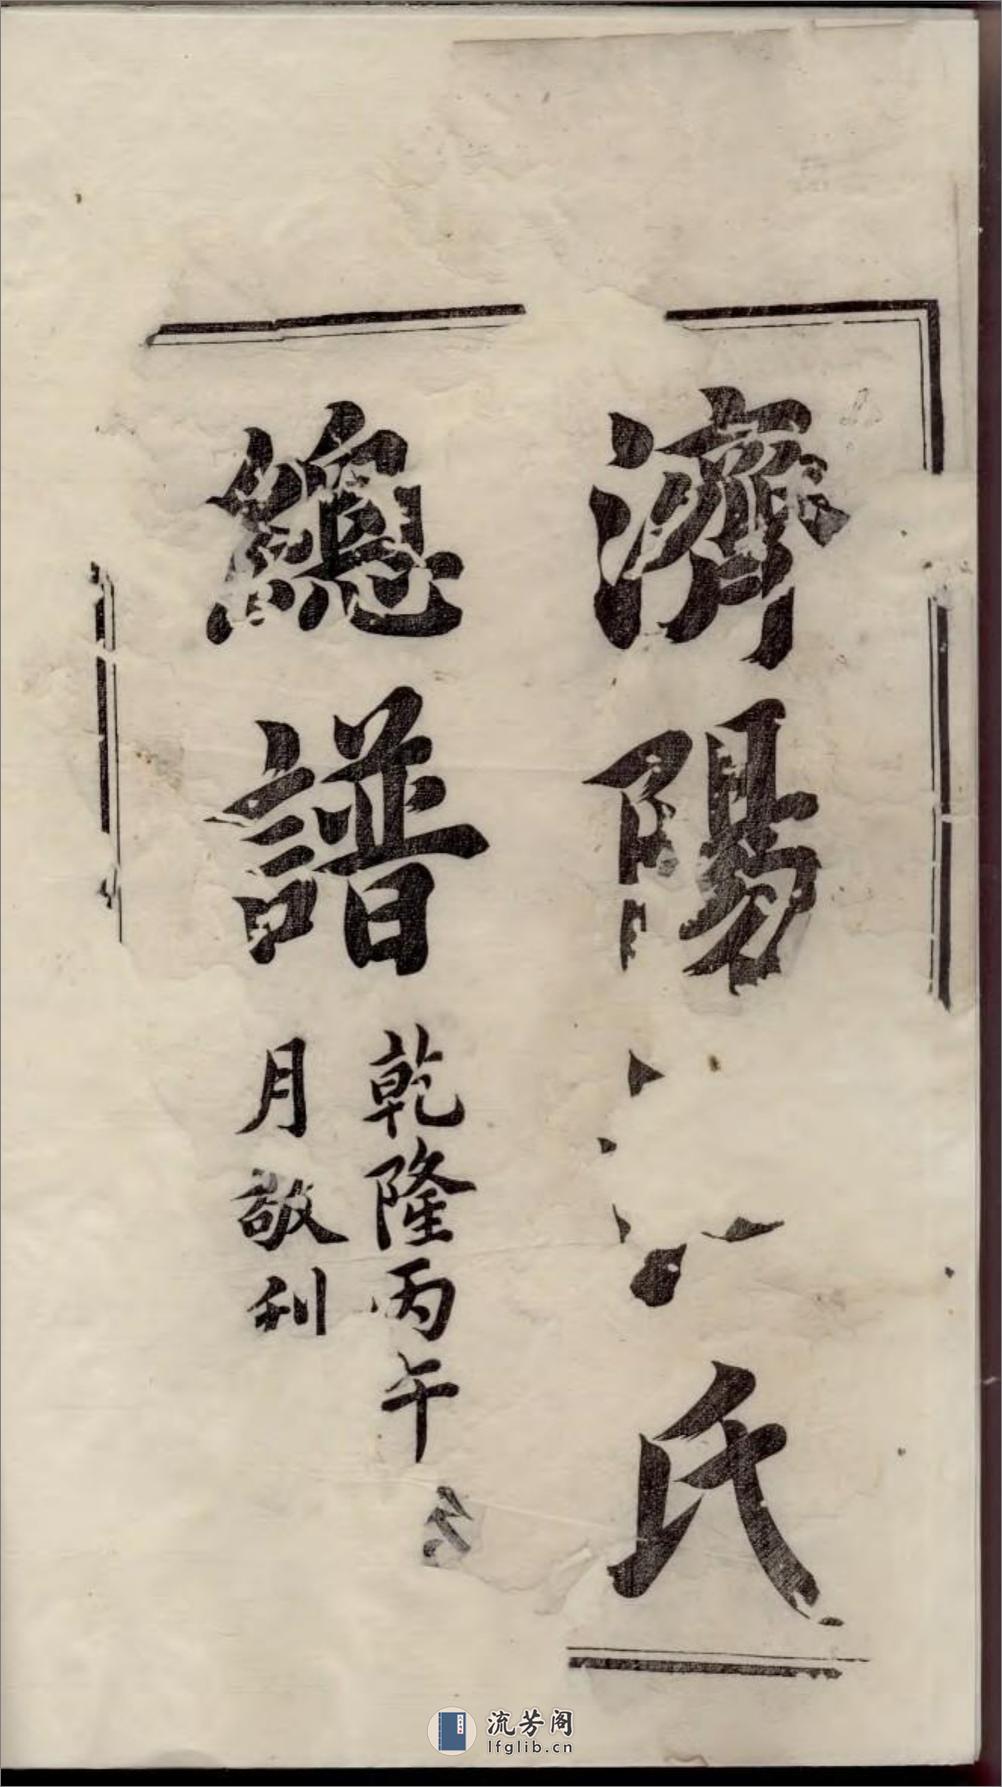 濟陽江氏
總譜
乾隆丙午
月敬刊
流芳阁
lfglib.cn